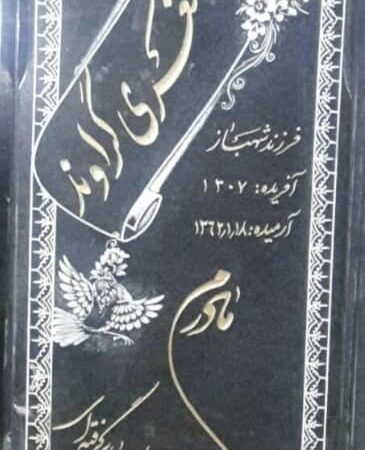 گراوند
فرزند شهباز
آفریده: ۱۳۰۷
آرمیده: ۱۳۶۲٫۱٫۱۸
مادرم